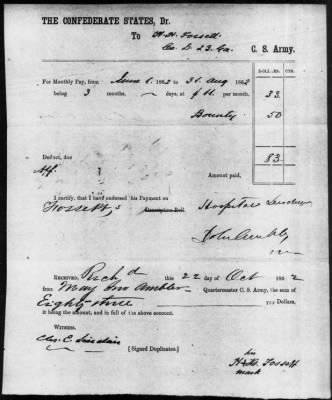 THE CONFEDERATE STATES, Dr.
To H. H. Fossett
Co. D 23. Ga. C. S. Army.
DOLLARS. CTS.
For Monthly Pay, from June 1. 1862 to 31. Aug 1862
being 3 months, days, at $11. per month. 33
Bounty 50
83
Deduct, due
Amount paid,
I certify, that I have endorsed his Payment on
Fossett's Description Roll Hospital
RECEIVED, Rich d this 22 day of Oct 1862
from Maj Jno Ambler Quartermaster C. S. Army, the sum of
Eighty three Dollars,
it being the amount, and in full of the above account.
WITNESS.
Chs. C. Sinclair
[Signed Duplicates.]
his
H. H. Fossett
mark